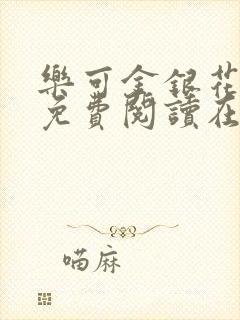 樂可金銀花
免費閱讀在
喵麻